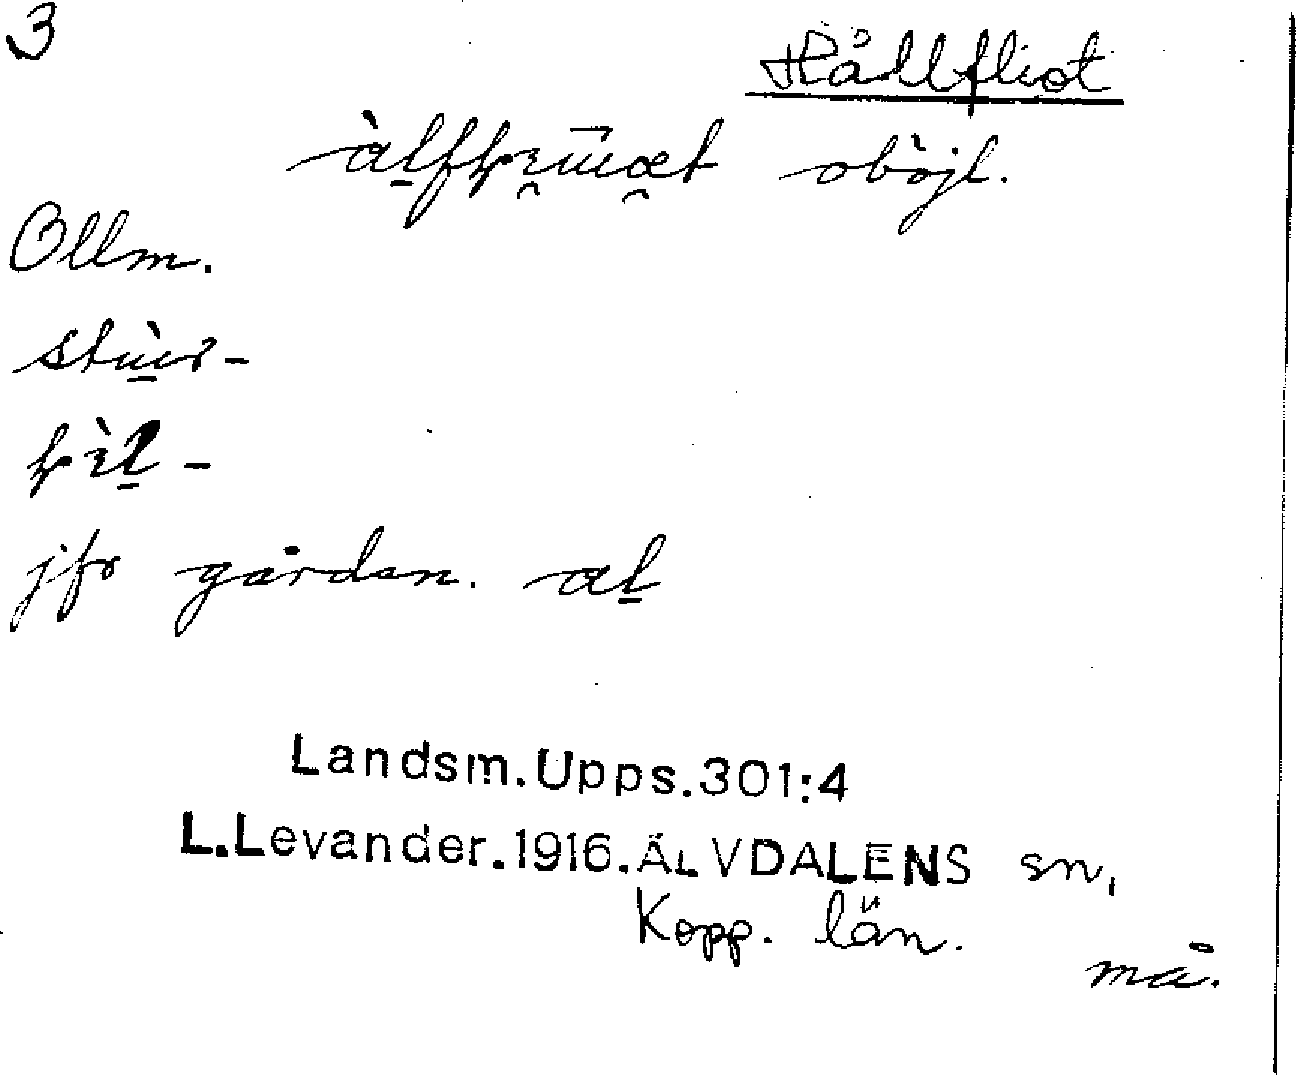 3
Hållfliot
àlfłi̯ūɯæt oböjl.
Ollm.
stùɯr-
łìl -
jfr gården. al
Landsm.Upps.301:4
L.Levander.1916.ÄLVDALENS sn,
Kopp. län.
mä.